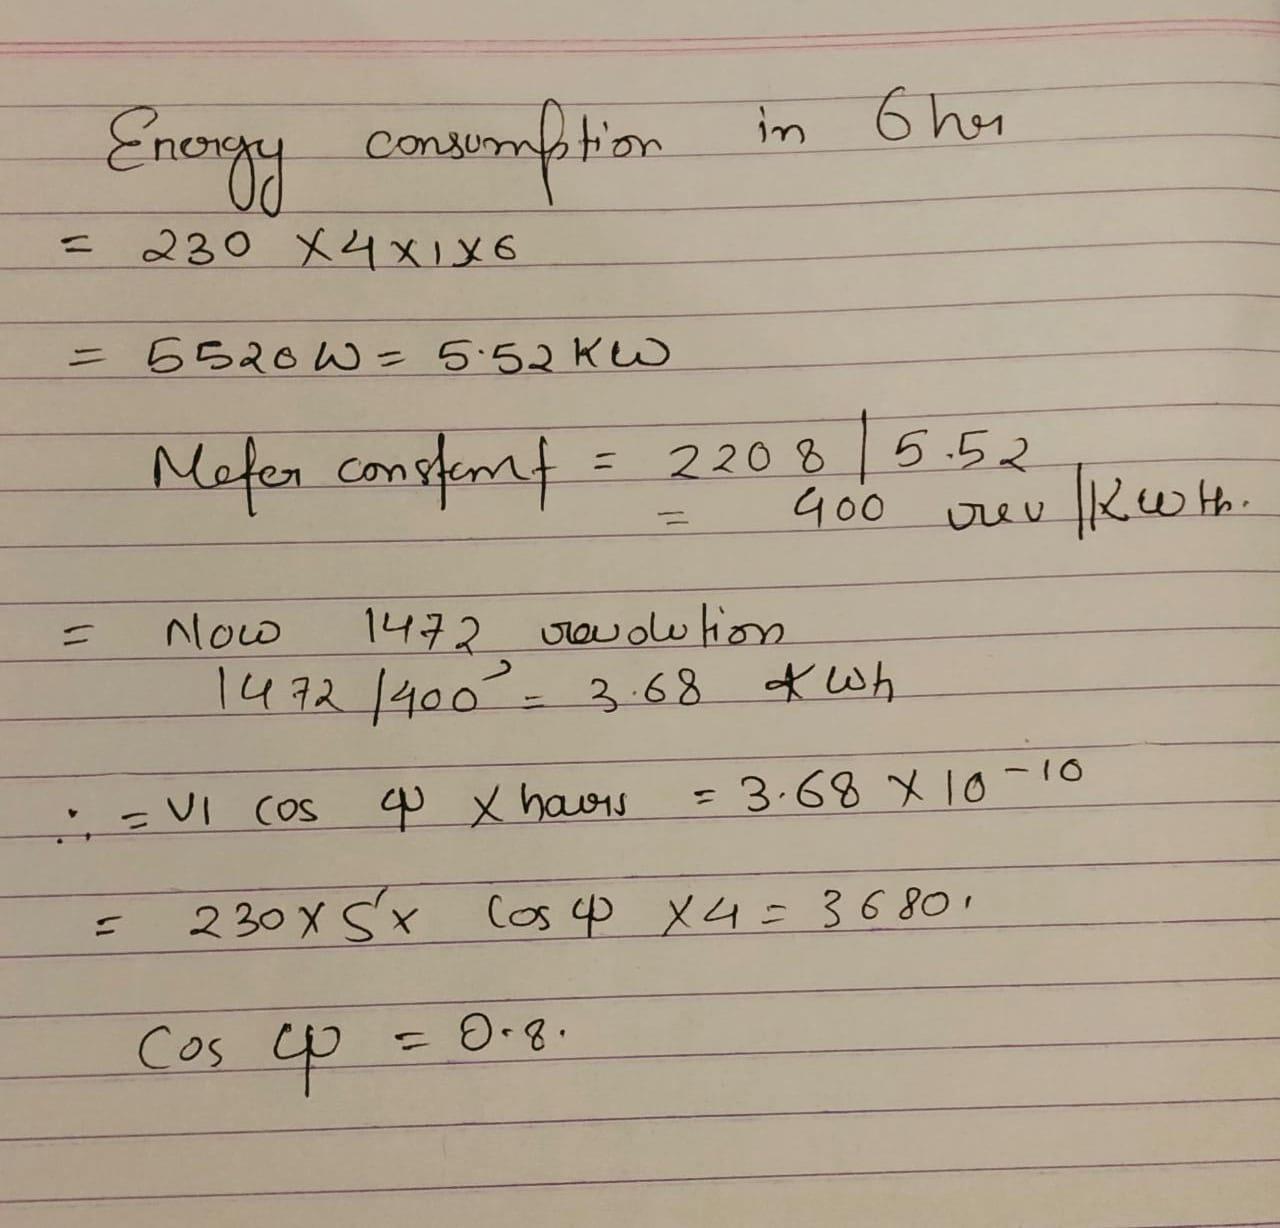 Energy consumption in 6 hrs
= 230 X 4 X 1 X 6
= 5520 W = 5.52 KW
Meter constant = 2208 / 5.52
= 400 rev / Kwth.
= Now 1472 revolution
1472 / 400 = 3.68 kwh
∴ = VI cos φ X hours = 3.68 X 10^-10
= 230 X 5 X Cos φ X 4 = 3680.
Cos φ = 0.8.